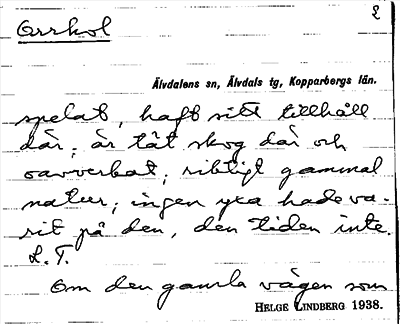 2
Orrkol
Älvdalens sn, Älvdals tg, Kopparbergs län.
spelat, haft sitt tillhåll
där; är tät skog där och
oavverkat, riktigt gammal
natur; ingen yxa hade va-
rit på den, den tiden inte.
L.T.
Om den gamla vägen som
HELGE LINDBERG 1938.